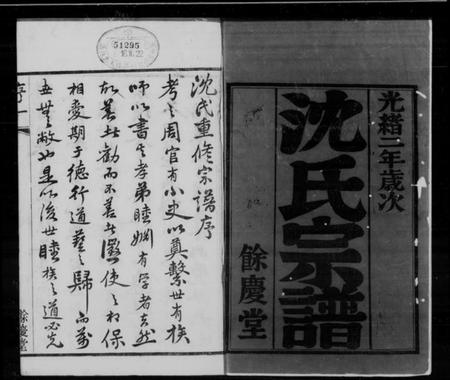 光緒二年歲次
沈氏宗譜
餘慶堂
51295
沈氏重修宗譜序
考之周官有小史以奠繫世有族
師以書其孝弟睦婣有學者去然
故善者勸而不善者懲使之相保
相愛期于德行道藝之歸而萬
世無敝也是以後世睦族之道必先
序一
餘慶堂